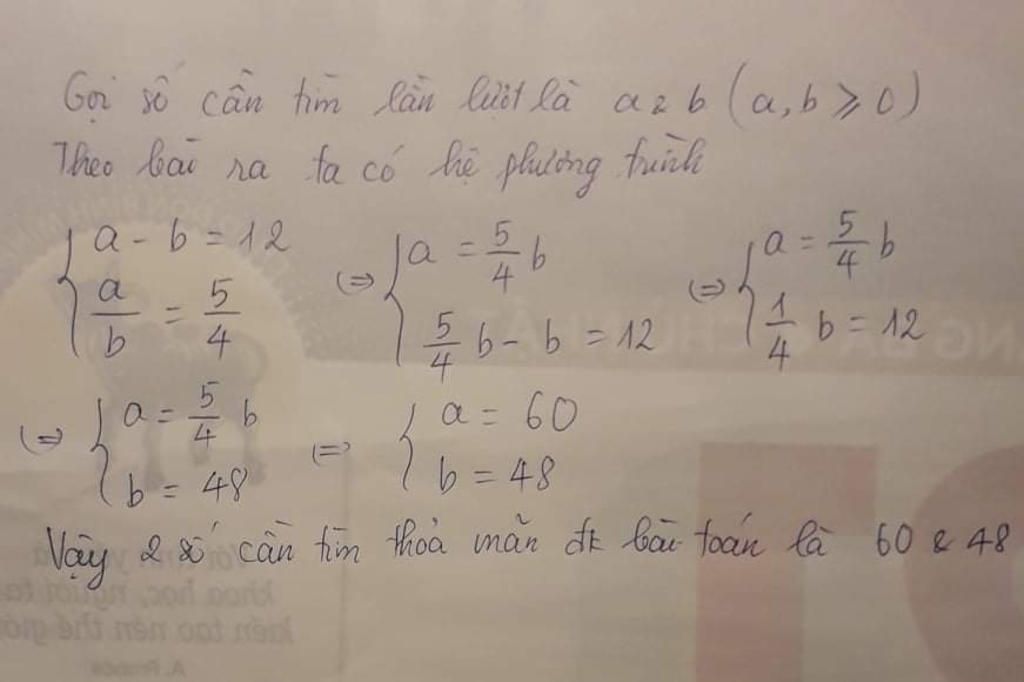 Gọi số cần tìm lần lượt là a & b (a, b ⩾ 0)
Theo bài ra ta có hệ phương trình
{ a - b = 12 ; a/b = 5/4 (=> { a = 5/4 b ; 5/4 b - b = 12 (=> { a = 5/4 b ; 1/4 b = 12
(=> { a = 5/4 b ; b = 48 (=> { a = 60 ; b = 48
Vậy 2 số cần tìm thoả mãn đk bài toán là 60 & 48
khoa học, người ta
kiến tạo nên thế giới
A. France